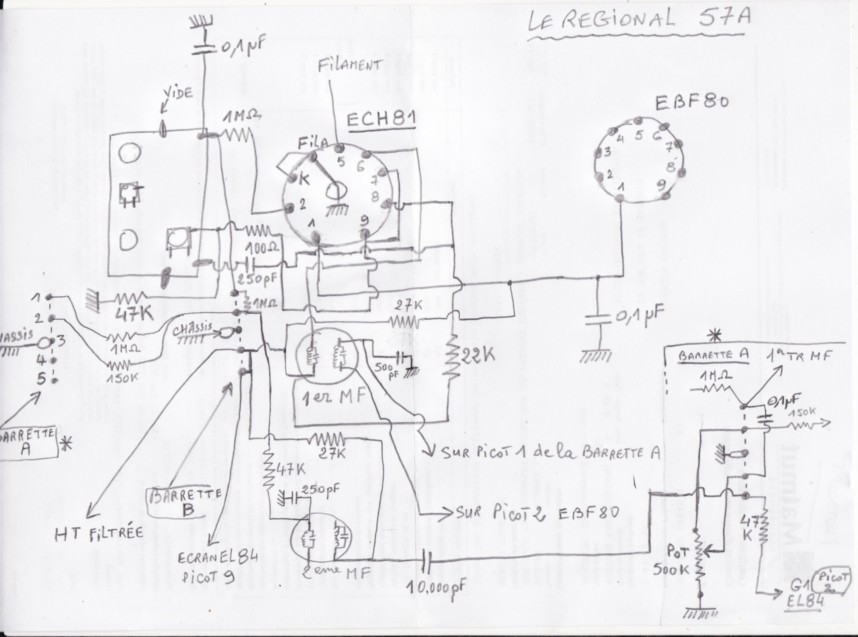 LE REGIONAL 57A
0,1µF
FILAMENT
VIDE
1MΩ
ECH81
EBF80
FILA
K
5
6
7
8
2
1
9
4
5
6
3
7
2
8
1
9
100Ω
250pF
1
47K
1MΩ
27K
2
CHÂSSIS
0,1µF
3
1MΩ
4
150K
5
500
pF
22K
1er MF
*
BARRETTE A
1er TR MF
1MΩ
0,1µF
150K
A
*
27K
SUR PICOT 1 de la BARRETTE A
47K
BARRETTE
B
250pF
SUR PICOT 2 EBF80
HT FILTRÉE
ECRAN EL84
PICOT 9
2eme MF
10.000pF
POT
500K
47
K
G1
EL84
PICOT
2